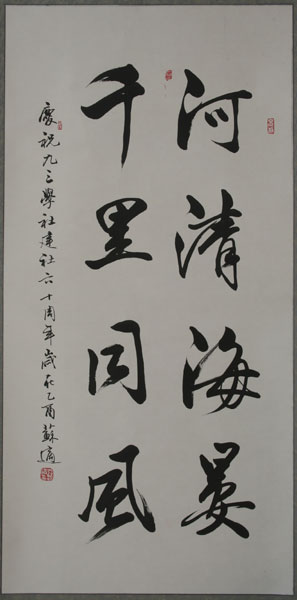 河清海晏
千里同風
慶祝九三學社建社六十周年歲在乙酉蘇適